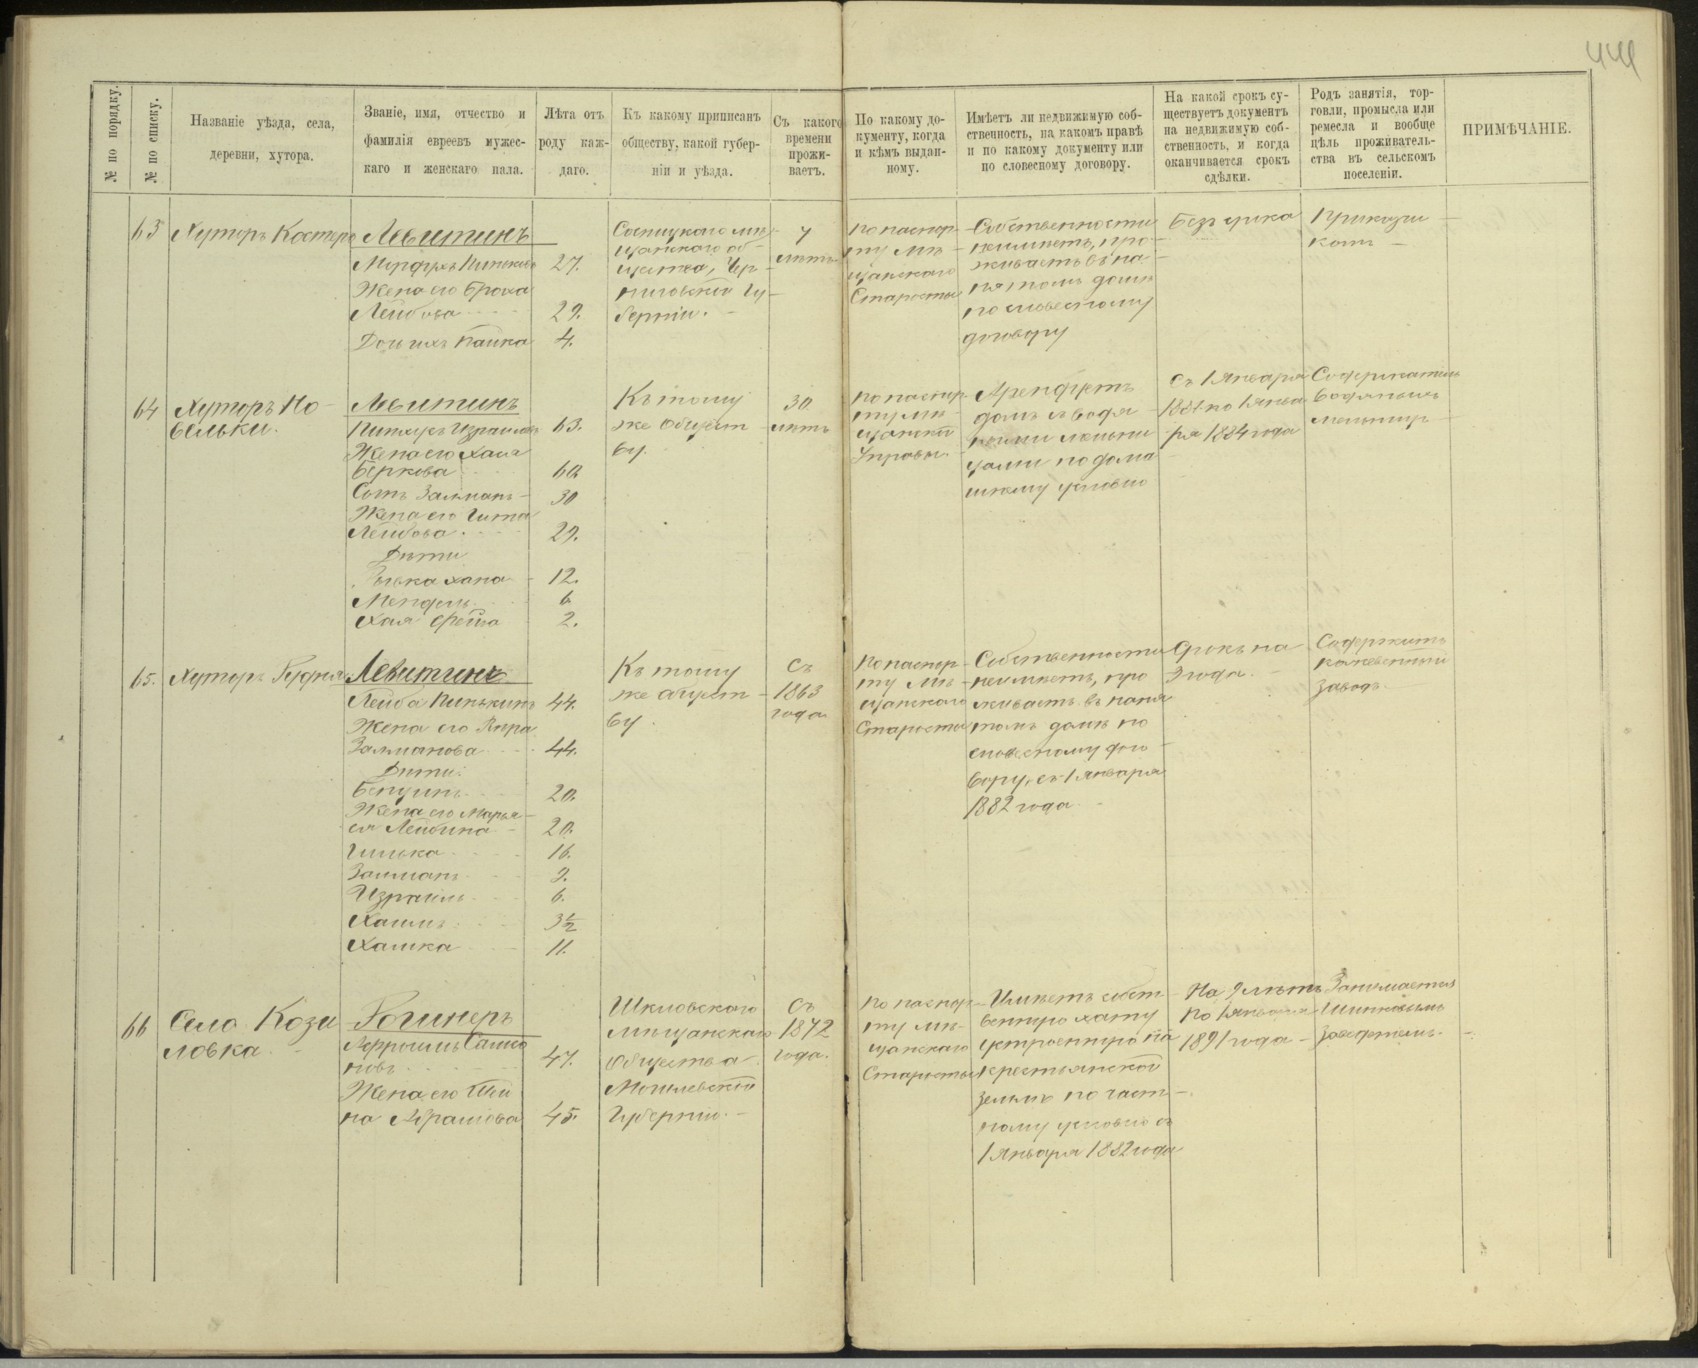 444
№ по порядку.
№ по списку.
Названіе уѣзда, села,
деревни, хутора.
Званіе, имя, отчество и
фамилія евреевъ мужес-
каго и женскаго пала.
Лѣта отъ
роду каж-
даго.
Къ какому приписанъ
обществу, какой губер-
ніи и уѣзда.
Съ какого
времени
прожи-
ваетъ.
По какому до-
кументу, когда
и кѣмъ выдан-
ному.
Имѣетъ ли недвижимую соб-
ственность, на какомъ правѣ
и по какому документу или
по словесному договору.
На какой срокъ су-
ществуетъ документъ
на недвижимую соб-
ственность, и когда
оканчивается срокъ
сдѣлки.
Родъ занятія, тор-
говли, промысла или
ремесла и вообще
цѣль проживатель-
ства въ сельскомъ
поселеніи.
ПРИМѢЧАНІЕ.
63
Хуторъ Костеро
Левитинъ
27.
Жена его Брока
Лейбова
29.
Дочь ихъ
4.
Сосницкаго мѣ
щанскаго об-
щества, Чер
ниговской Гу
берніи.
7
лѣтъ
По паспор
ту мѣ
щанскаго
Старосты
Собственности
неимѣетъ, про
живаетъ въ на
нятомъ домѣ
по словесному
договору
Безъ срока
Прикащи
комъ
64
Хуторъ Но
вельки.
Левитинъ
63.
Жена его Хая
Беркова
60.
Сынъ Залманъ
30
Жена его Гита
Лейбова
29.
Дѣти
12.
Мендель
6
Хая
2.
Къ тому
же общест
ву.
30
лѣтъ
По паспор
ту мѣ
щанской
Управы.
Арендуетъ
домъ съ водя
ными мельни
цами по дома
шнему условію
Съ 1 Января
1881 по 1 Янва
ря 1884 года
Содержатель
водяныхъ
мельницъ
65.
Хуторъ Рудня
Левитинъ
Лейба Пинькинъ
44.
Жена его
Залманова
44.
Дѣти:
20.
Жена его Марья
ся Лейбина
20.
16.
Залманъ
9.
Израиль
6.
Хаимъ
3½
Хашка
11.
Къ тому
же общест
ву.
Съ
1863
года
По паспор
ту мѣ
щанскаго
Старосты
Собственности
неимѣетъ, про
живаетъ въ наня
томъ домѣ по
словесному дого
вору, съ 1 Января
1882 года
Срокъ на
3 года.
Содержитъ
кожевенный
заводъ.
66
Село Кози
ловка.
Рогинеръ
47.
Жена его
на Абрамова
45.
Шкловскаго
мѣщанскаго
Общества
Могилевской
Губерніи.
Съ
1872
года.
По паспор
ту мѣ
щанскаго
Старосты
Имѣетъ собст
венную хату
устроенную на
крестьянской
землѣ по част
ному условію съ
1 Января 1882 года
На 9 лѣтъ
по 1 Января
1891 года
Занимается